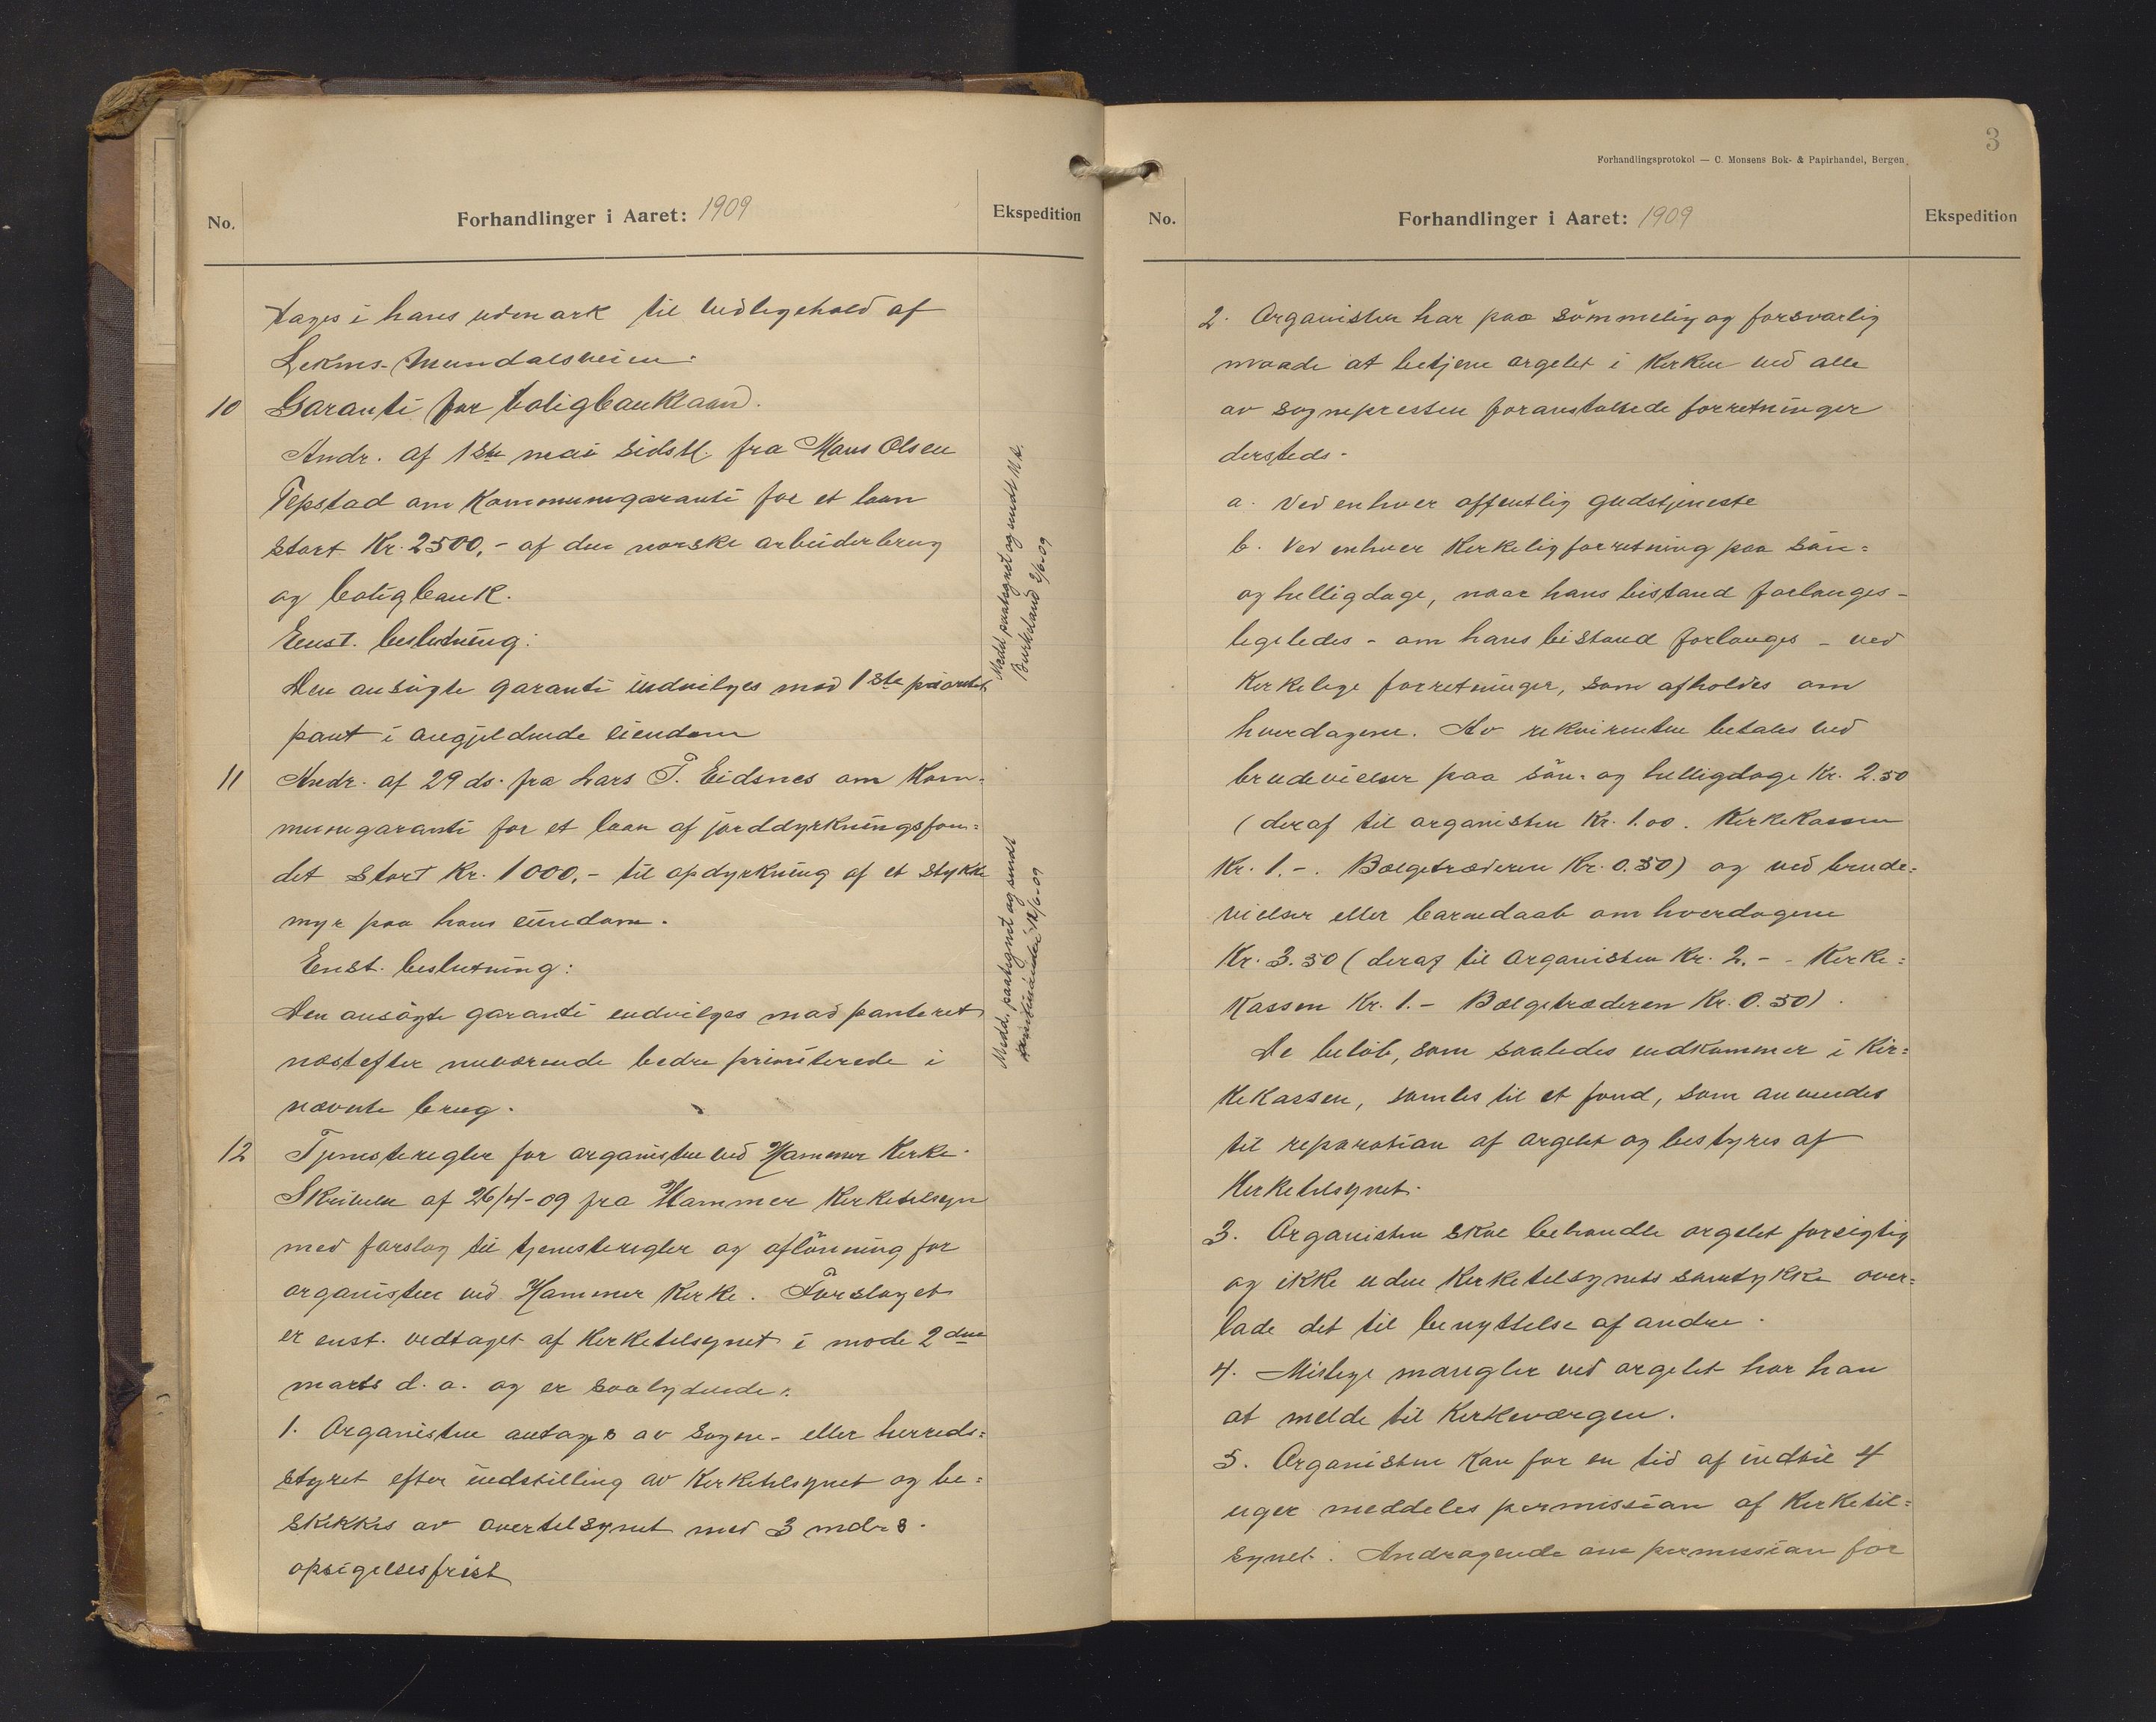 No.
Forhandlinger i Aaret: 1909
Ekspedition
tages i hans udmark til vedligehold af
Leknes-Mundalsveien.
10 Garanti for boligbanklaan.
Andr. af 1ste mai sidstl. fra Mons Olsen
Tepstad om Kommunegaranti for et laan
stort Kr. 2500,- af den norske arbeiderbrug
og boligbank.
Enst. beslutning:
Den ansögte garanti indvilges mod 1ste prioritets
pant i angjeldende eiendom
Medd. paategnet og sendt
Burkeland 2/6-09
11 Andr. af 29 ds. fra Lars T. Eidsnes om Kom-
munegaranti for et laan af jorddyrkningsfon-
det stort Kr. 1000,- til opdyrkning af et stykke
myr paa hans eiendom.
Enst. beslutning:
Den ansögte garanti indvilges mod panteret
næstefter nuværende bedre prioriterede i
nævnte brug.
Medd. paategnet og sendt
12 Tjenesteregler for organisten ved Hammer Kirke.
Skrivelse af 26/4-09 fra Hammer Kirketilsyn
med forslag til tjenesteregler og aflönning for
organisten ved Hammer Kirke. Forslaget
er enst. vedtaget af Kirketilsynet i mode 2den
marts d. a. og er saalydende:
1. Organisten antages av Sogne- eller herreds-
styret efter indstilling av Kirketilsynet og be-
skikkes av overtilsynet med 3 mdrs.
opsigelsesfrist
3
Forhandlingsprotokol — C. Monsens Bok- & Papirhandel, Bergen.
No.
Forhandlinger i Aaret: 1909
Ekspedition
2. Organisten har paa sömmelig og forsvarlig
maade at betjene orgelet i Kirken ved alle
av sognepresten foranstaltede forretninger
dersteds.
a. Ved enhver offentlig gudstjeneste
b. Ved enhver Kirkelig forretning paa sön-
og helligdage, naar hans bistand forlanges -
ligeledes - om hans bistand forlanges - ved
Kirkelige forretninger, som afholdes om
hverdagene. Av rekvirenten betales ved
brudevielser paa sön- og helligdage Kr. 2.50
(deraf til organisten Kr. 1.00. Kirkekassen
Kr. 1.-. Bælgetræderen Kr. 0.50) og ved brude-
vielser eller barnedaab om hverdagene
Kr. 3.50 (deraf til Organisten Kr. 2.- - Kirke-
Kassen Kr. 1.- Bælgetræderen Kr. 0.50).
De belöb, som saaledes indkommer i Kir-
kekassen, samles til et fond, som anvendes
til reparation af orgelet og bestyres af
Kirketilsynet.
3. Organisten skal behandle orgelet forsigtig
og ikke uden Kirketilsynets samtykke over-
lade det til benyttelse af andre.
4. Mulige mangler ved orgelet har han
at melde til Kirkeværgen.
5. Organisten kan for en tid af indtil 4
uger meddeles permission af Kirketil-
synet. Andragende om permission for